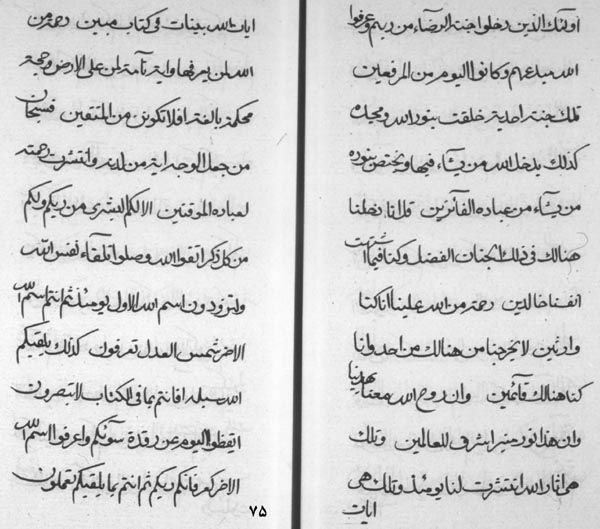 اولئك الذين دخلوا جنة الرضاء من ربهم وعرفوا
الله مبدعهم وكانوا اليوم من المرفعين
تلك جنة احدية خلقت بنور الله ومجده
كذلك يدخل الله من يشاء فيها ويختص بنوره
من يشاء من عباده الفائزين قل انا دخلنا
هنالك في ذلك الجنات الفضل وكنا فيما اشتهت
انفسنا خالدين رحمة من الله علينا انا كنا
وارثين لا يخرجنا من هنالك من احد وانا
كنا هنالك قائمين وان روح الله معنا يهدينا
وان هذا نور منير اشرق للعالمين وتلك
هي اثار الله انتشرت لنا يومئذ وتلك هي
ايات
ايات الله بينات في كتاب مبين رحمة من
الله لمن يعرفها واية تامة لمن على الارض وحجة
محكمة بالغة افلا تكونن من المتقين فسبحان
من جمل الوجه اية من لدنه وانتشرت رحمته
لعباده الموقنين الا لكم البشرى من ربكم ولكم
من كل ذكر اتقوا الله وصلوا تلقاء نفس الله
ولتردون اسم الله الاول يومئذ ثم انتم اسم الله
الاخر شمس العدل تعرفون كذلك يلقيكم
الله سبله افانتم بما في الكتاب لا تبصرون
ايقظوا اليوم عن رقدة سوئكم واعرفوا اسم الله
الاخر فانكم ربكم ثم انتم بما يلقيكم تعملون
٧۵